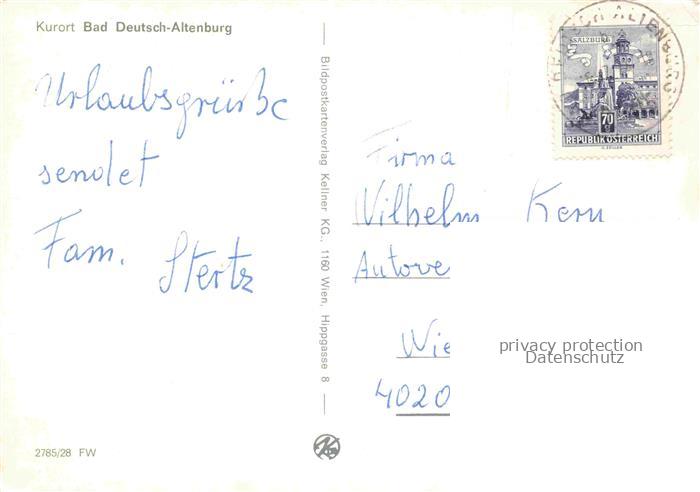 Kurort Bad Deutsch-Altenburg
Urlaubsgrüße
sendet
Fam. Stertz
2785/28 FW
Bildpostkartenverlag Kellner KG., 1160 Wien, Hippgasse 8
SALZBURG
70
REPUBLIK ÖSTERREICH
DEUTSCH ALTENBURG
Firma
Wilhelm Kern
Autove
Wie
4020
privacy protection
Datenschutz